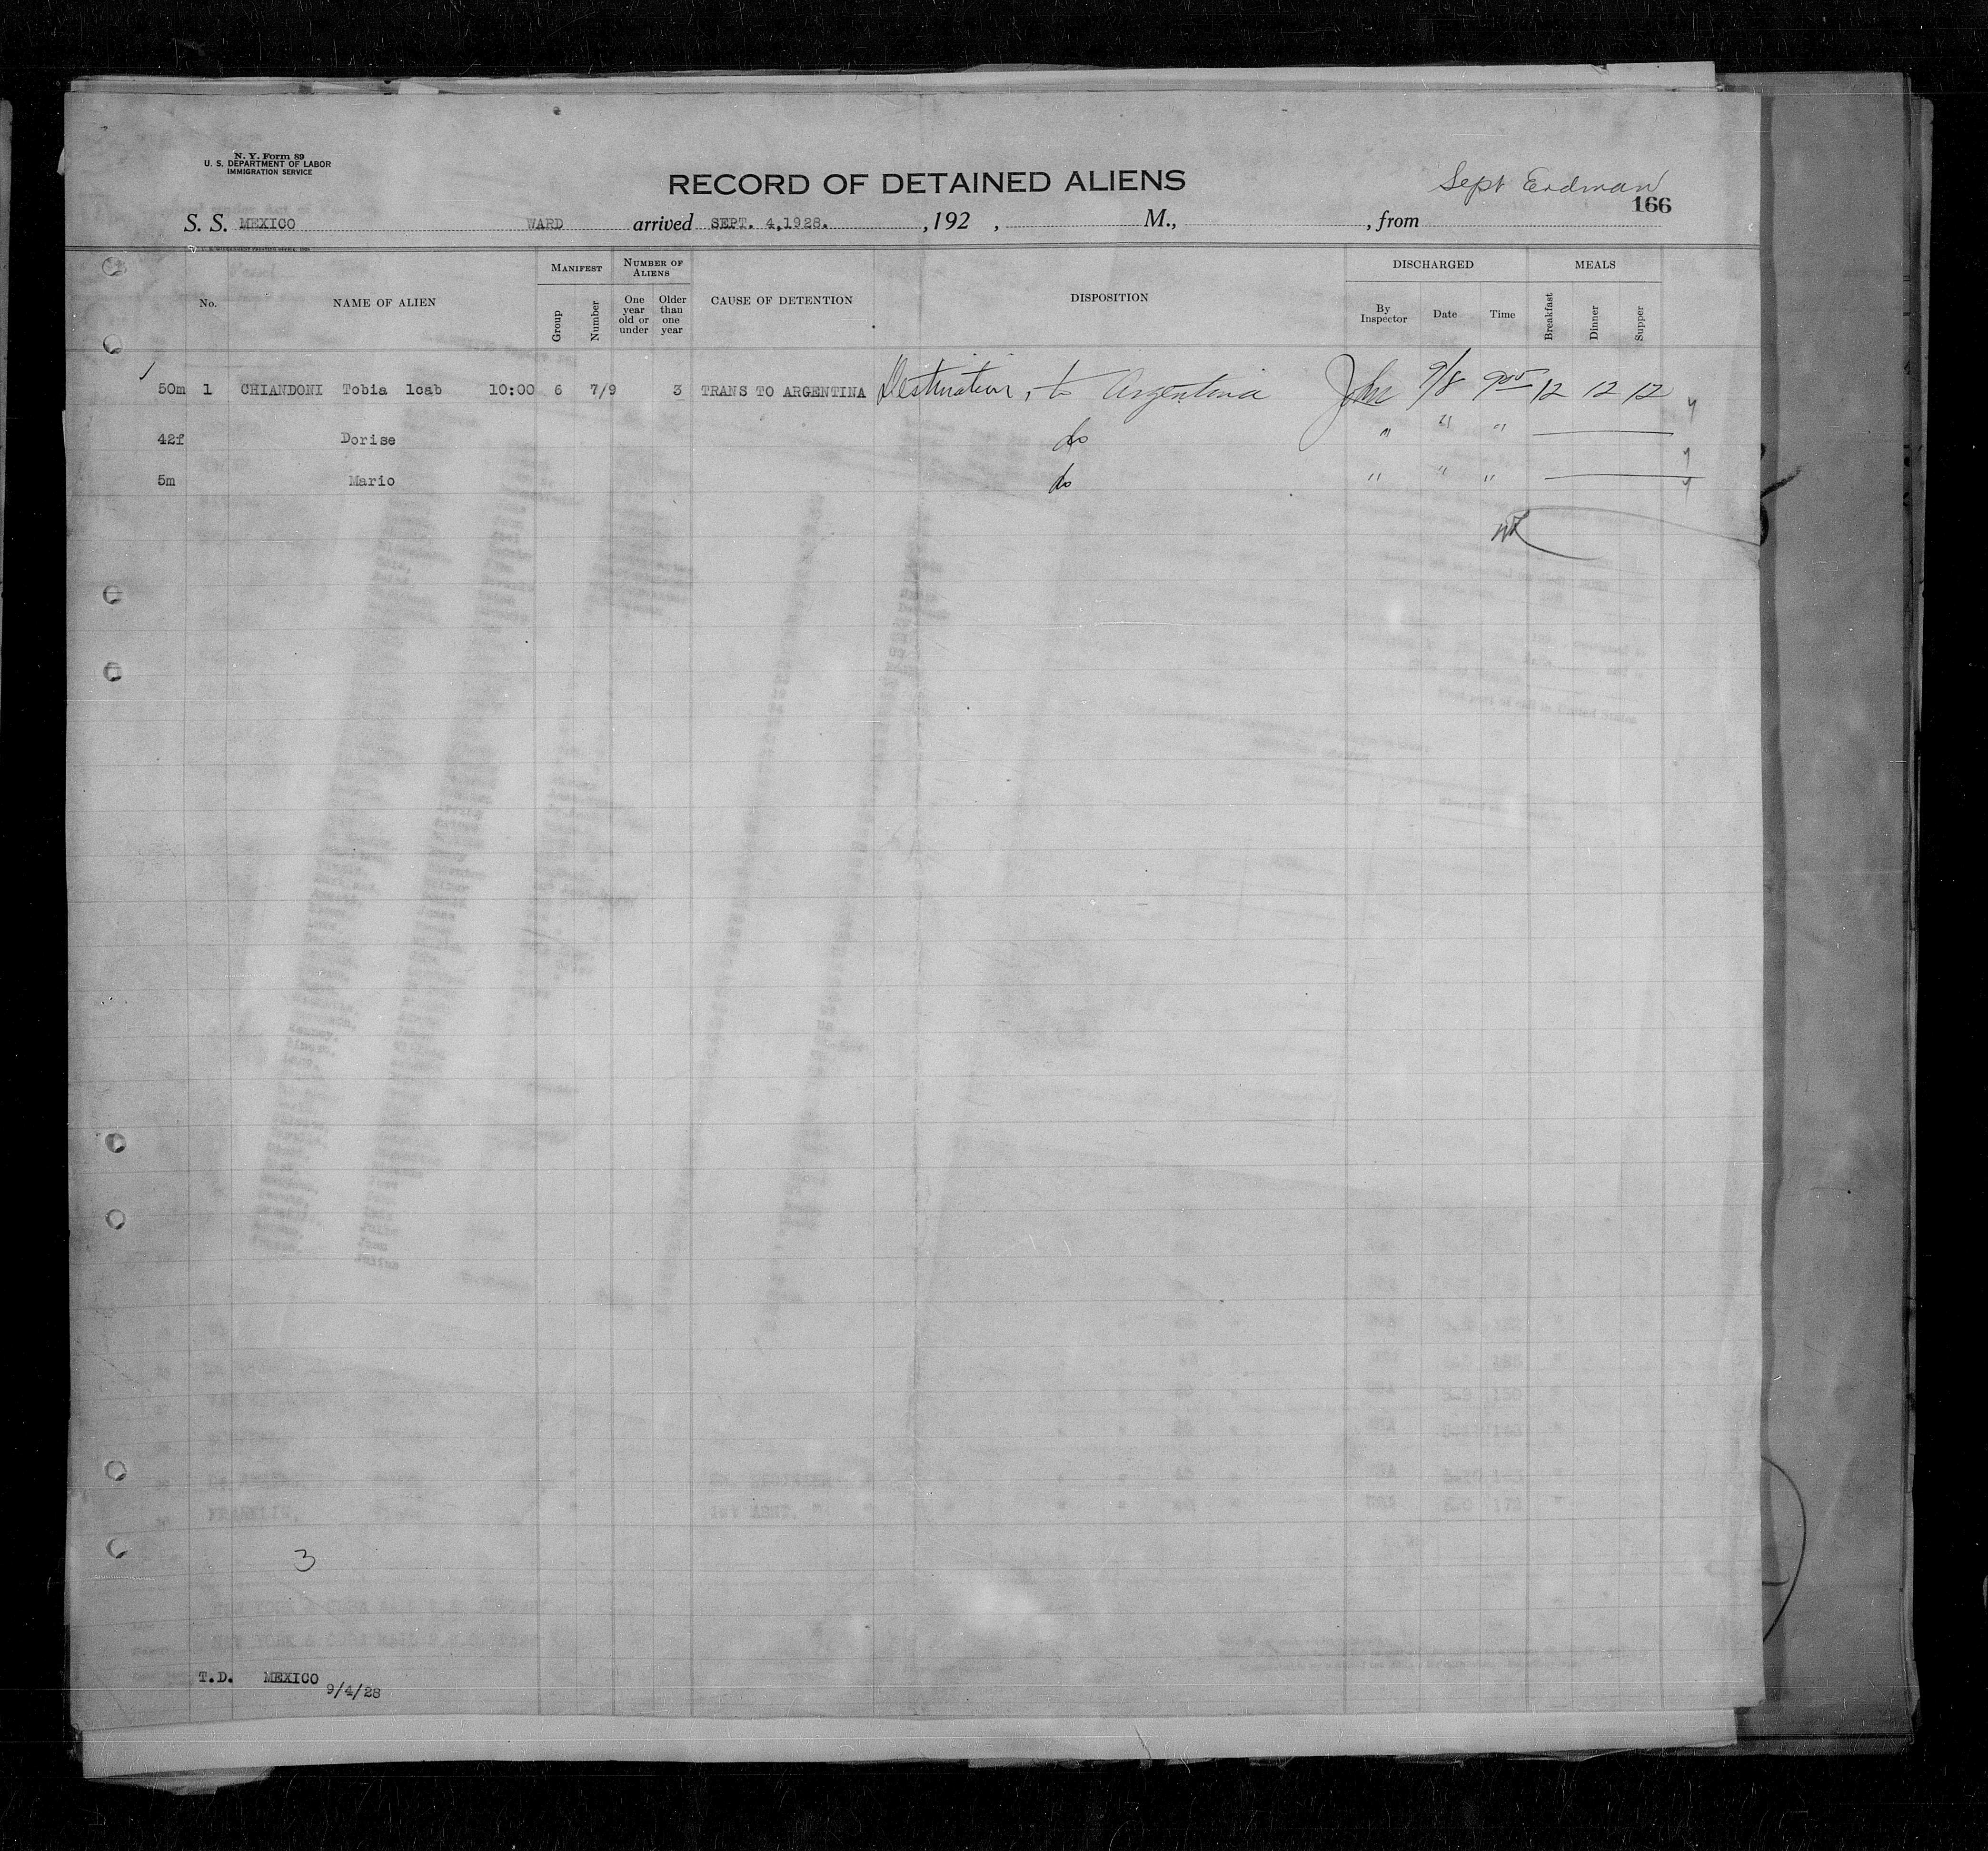 N. Y. Form 89
U. S. DEPARTMENT OF LABOR
IMMIGRATION SERVICE
RECORD OF DETAINED ALIENS
Sept Erdman
166
S. S. MEXICO WARD arrived SEPT. 4,1928. , 192 , M., , from
No. NAME OF ALIEN MANIFEST Group Number NUMBER OF ALIENS One year old or under Older than one year CAUSE OF DETENTION DISPOSITION DISCHARGED By Inspector Date Time MEALS Breakfast Dinner Supper
50m 1 CHIANDONI Tobia 1cab 10:00 6 7/9 3 TRANS TO ARGENTINA Destination, to Argentina 9/8 9:05 12 12 12
42f Dorise do " " "
5m Mario do " " "
3
T.D. MEXICO 9/4/28